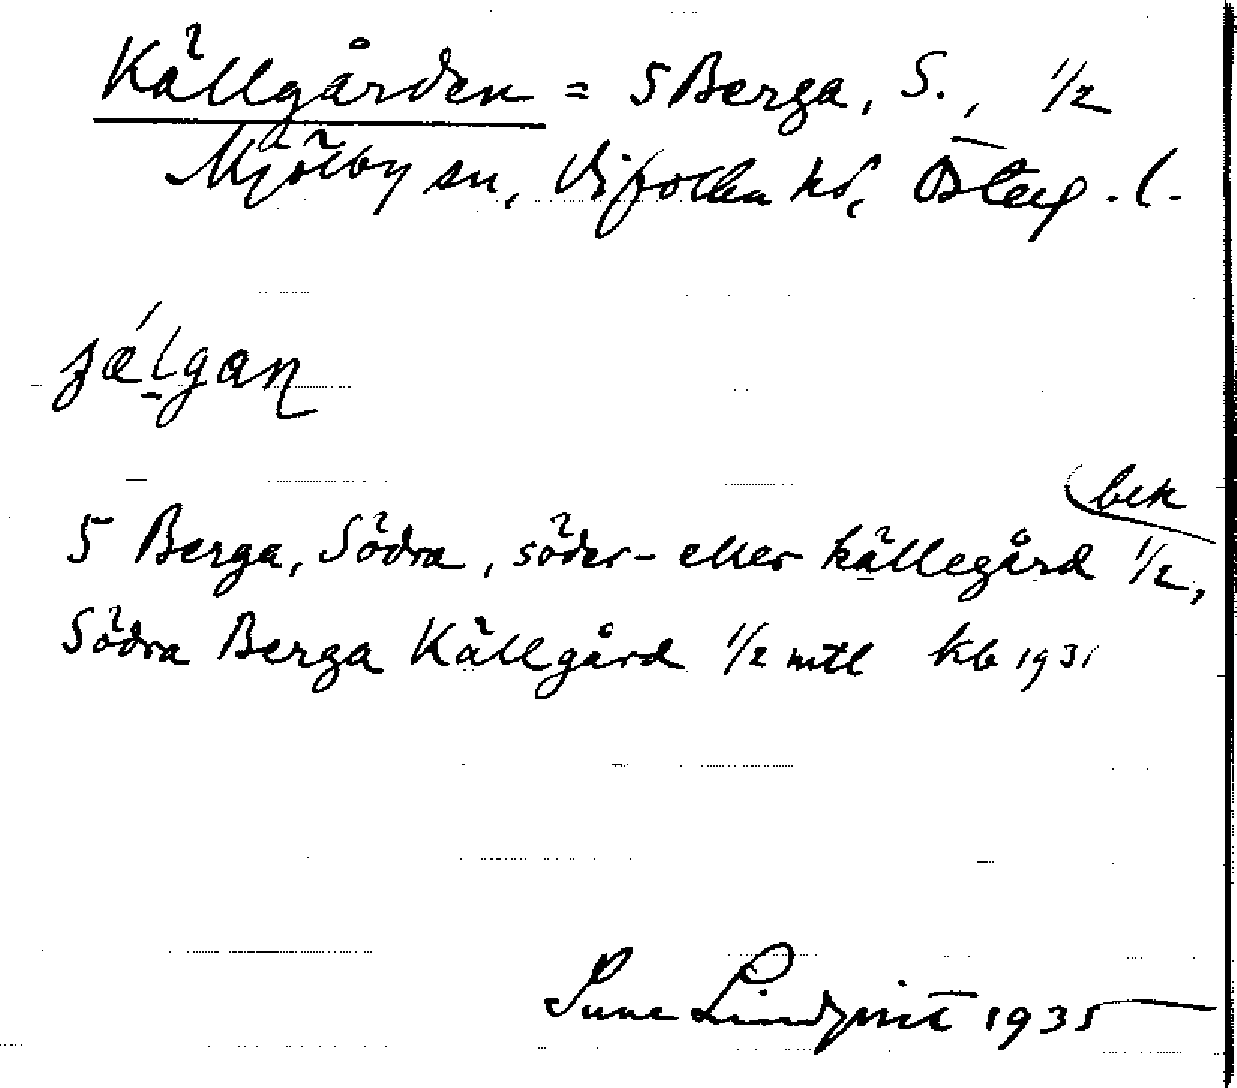 Källgården = 5 Berga, S., 1/2
Mjölby sn, Vifolka hd, Österg. l.
bek
5 Berga, Södra, söder- eller källegård 1/2,
Södra Berga Källgård 1/2 mtl kb 1931
Sune Lindqvist 1935